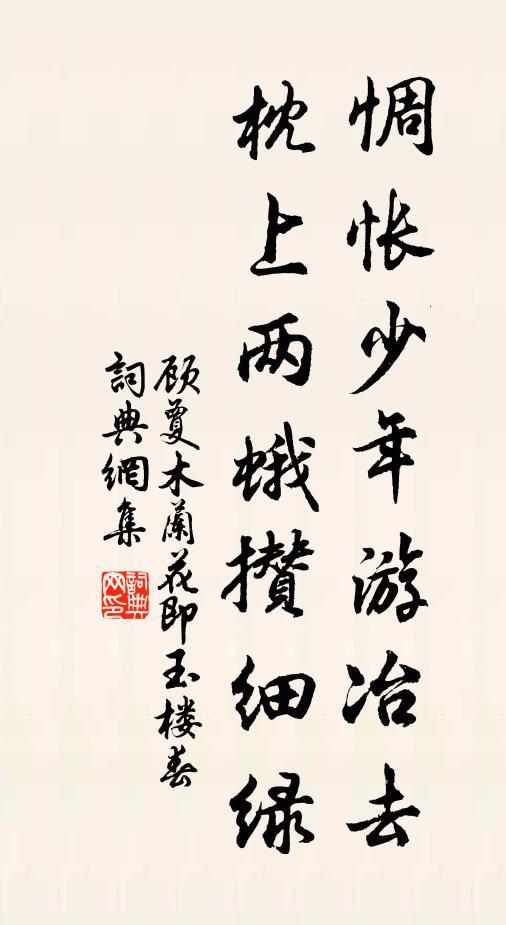 惆怅少年游冶去
枕上两蛾攒细绿
顾夐木蘭花即玉楼春
詞典網集
詞典网印